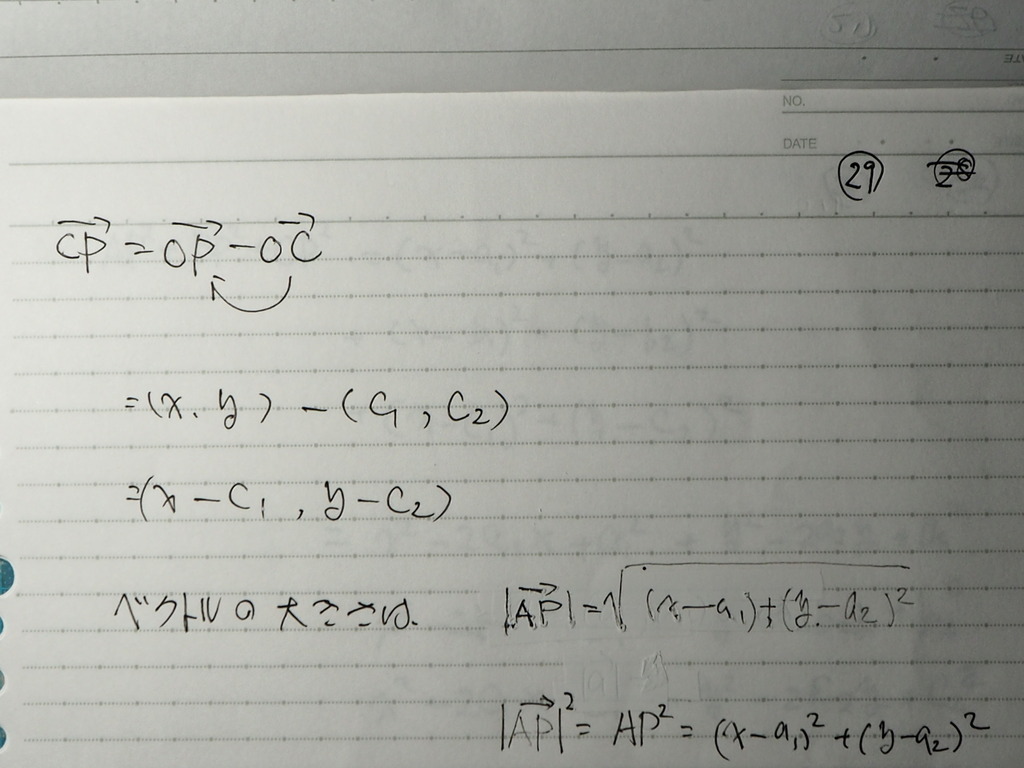 NO.
DATE
㉙
CP→ = OP→ − OC→
= (x, y) − (C₁, C₂)
= (x − C₁, y − C₂)
ベクトルの大きさは、 |AP→| = √((x − a₁) + (y − a₂)²)
|AP→|² = AP² = (x − a₁)² + (y − a₂)²